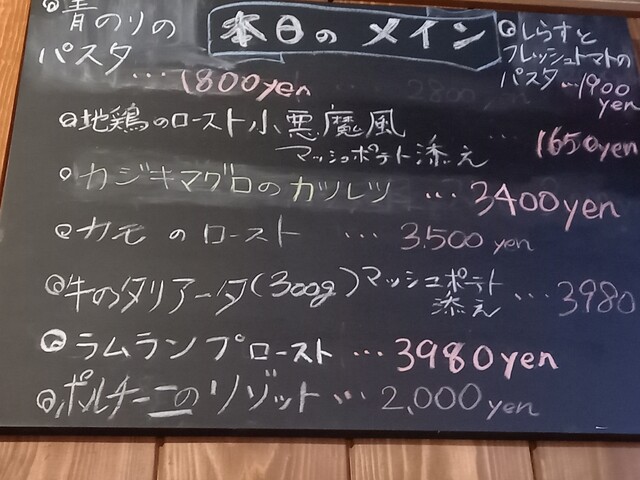 本日の メイン
青のりの
パスタ ... 1800yen
しらすと
フレッシュトマトの
パスタ ... 1900
yen
地鶏のロースト小悪魔風 ... 1650yen
マッシュポテト添え
カジキマグロのカツレツ ... 3400yen
カモのロースト ... 3,500 yen
牛のタリアータ(300g)マッシュポテト ... 3980
添え
ラムランプロースト ... 3980yen
ポルチーニのリゾット ... 2,000 yen